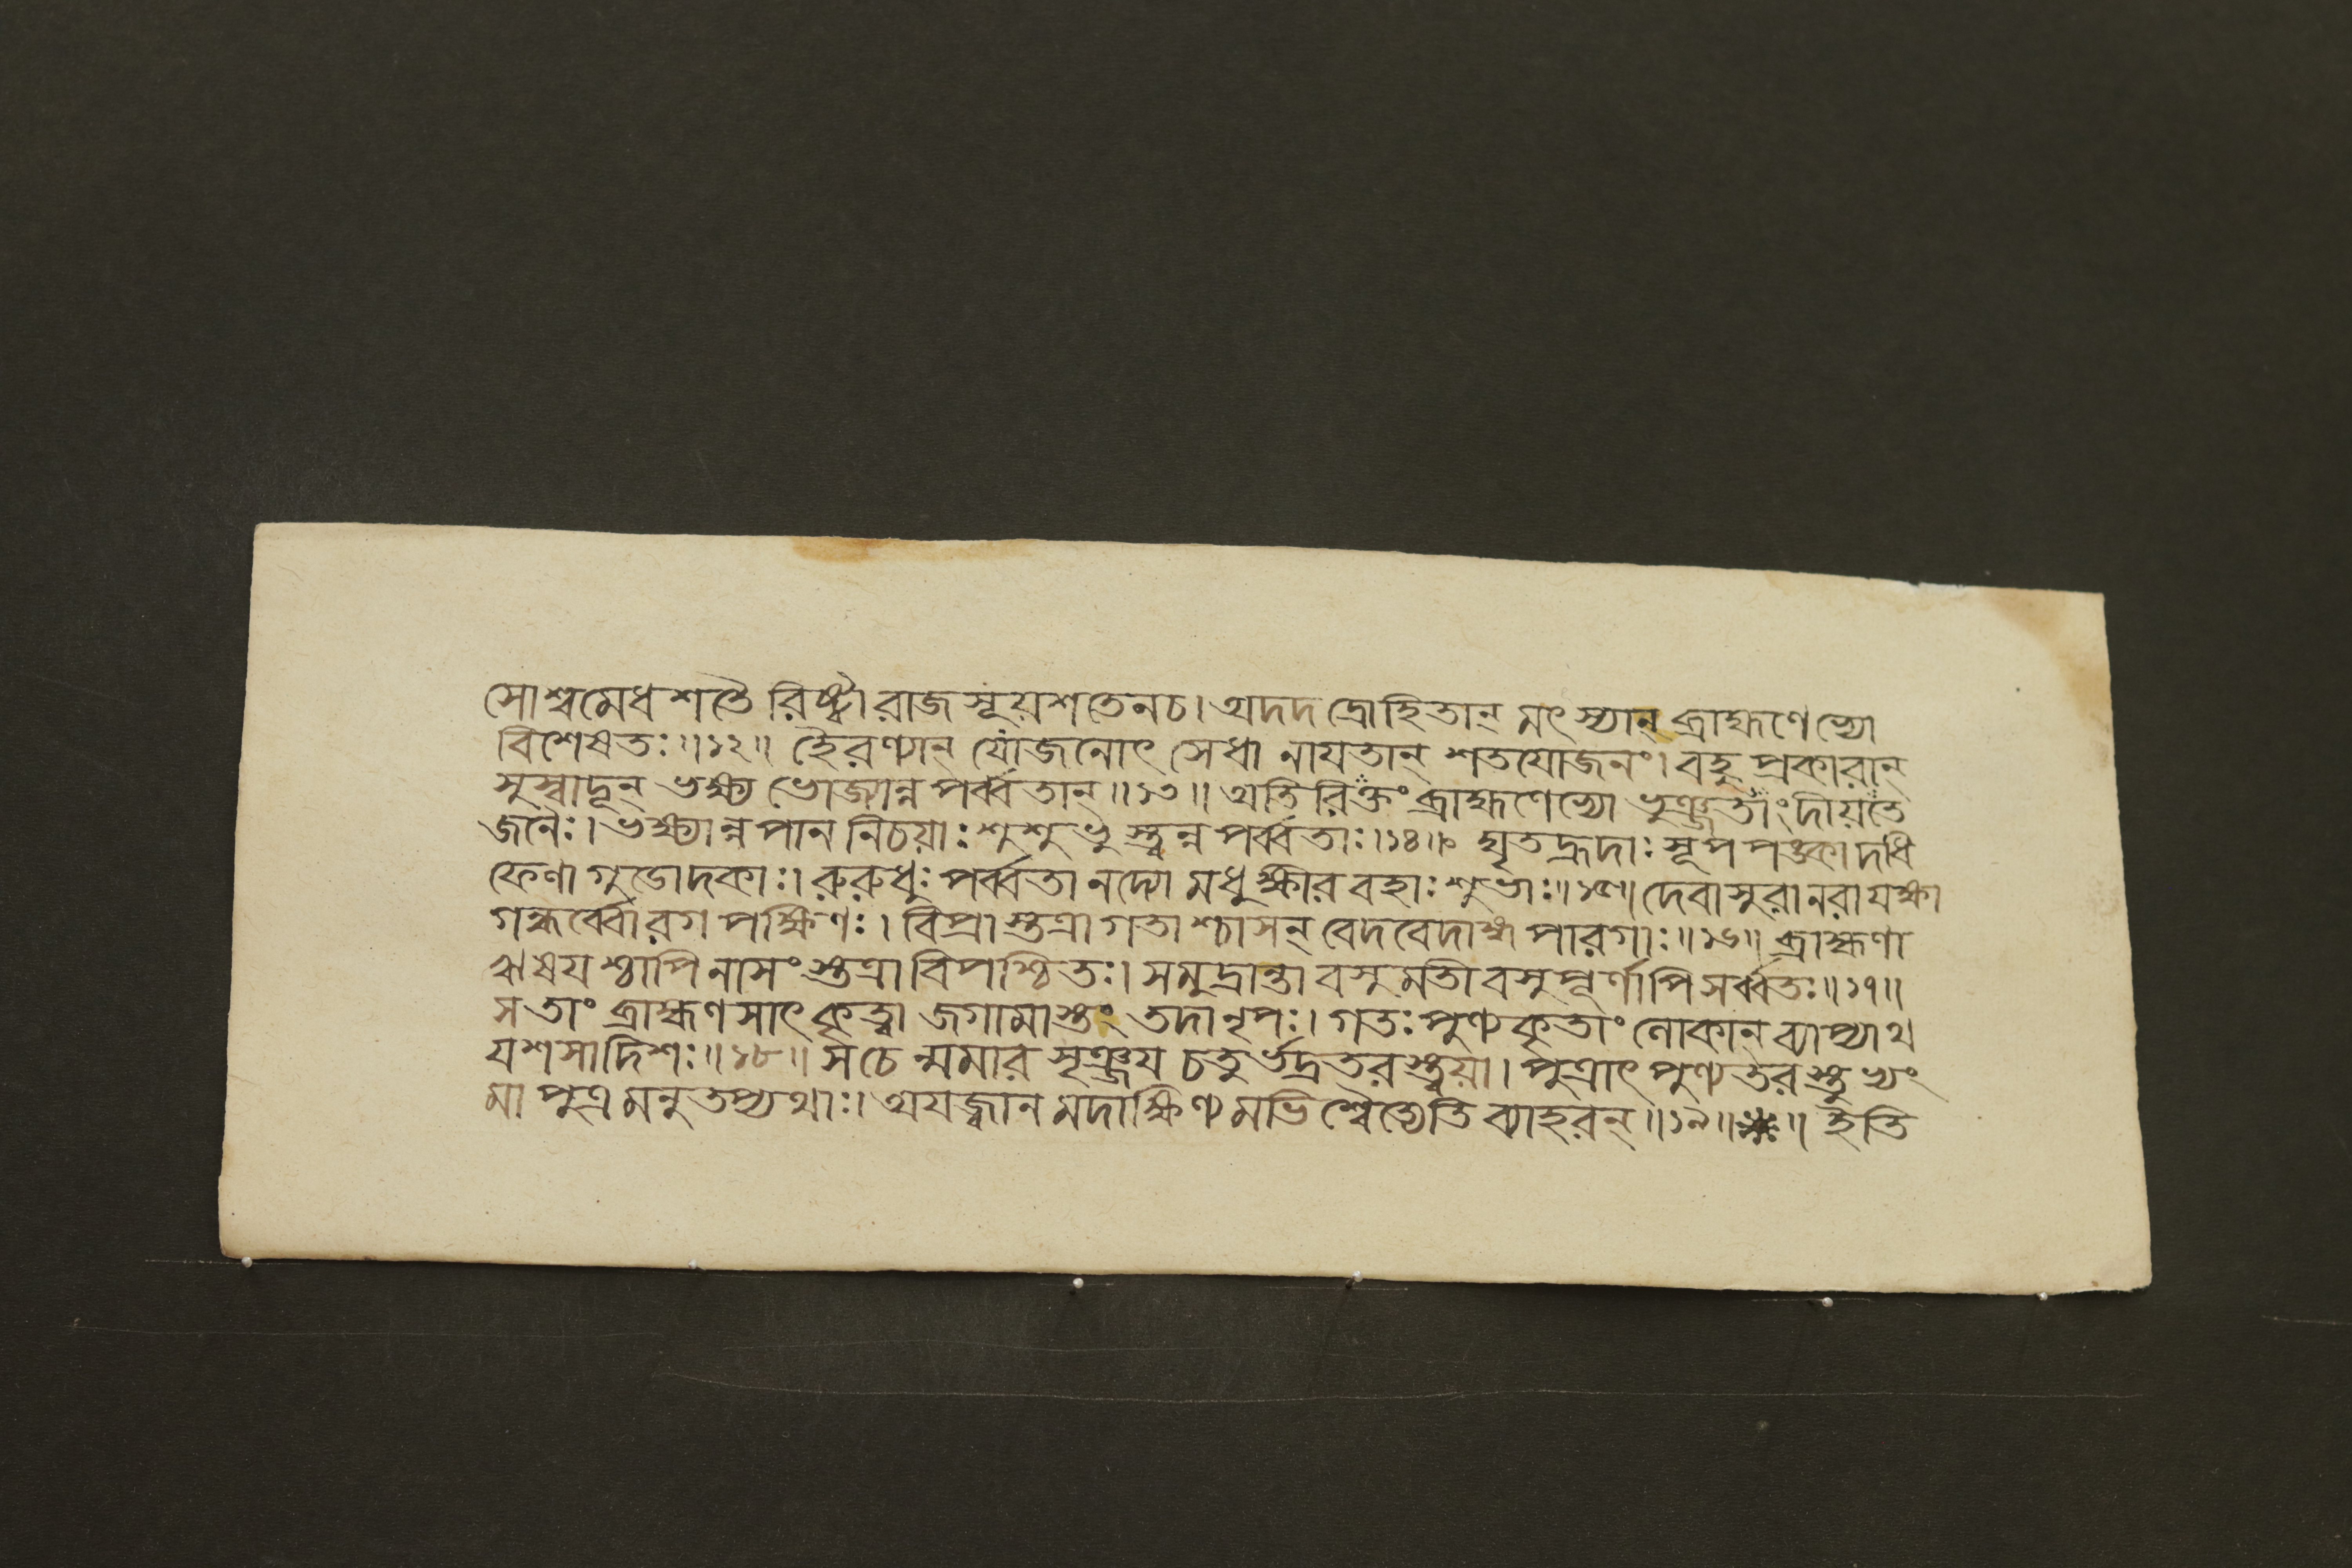 সোশ্বমেধশতৈ রিষ্ট্বা রাজসূয়শতেনচ। অদদদ্রোহিতান্ মৎস্যান্ ব্রাহ্মণেভ্যো
বিশেষতঃ॥১২॥ হৈরণ্যান্ যোজনোৎ সেধা নাযতান্ শতযোজনং। বহু প্রকারান্
সুস্বাদূন্ ভক্ষ্য ভোজ্যান্ন পর্ব্বতান্॥১৩॥ অতিরিক্তং ব্রাহ্মণেভ্যো ভুঞ্জতাং দীয়তে
জনৈঃ। ভক্ষ্যান্ন পান নিচয়াঃ শুশুভু স্ত্বন্ন পর্ব্বতাঃ।১৪॥ ঘৃতহ্রদাঃ সূপ পঙ্কা দধি
ফেণা গুডোদকাঃ। রুরুধুঃ পর্ব্বতা নদ্যো মধুক্ষীর বহাঃ শুভাঃ॥১৫॥ দেবাসুরা নরা যক্ষা
গন্ধর্ব্বোরগ পক্ষিণঃ। বিপ্রা স্তত্রা গতা শ্চাসন্ বেদবেদাঙ্গ পারগাঃ॥১৬॥ ব্রাহ্মণা
ঋষয শ্চাপি নাসং স্তত্রা বিপশ্চিতঃ। সমুদ্রান্তা বসুমতী বসুপূর্ণাপি সর্ব্বতঃ॥১৭॥
স তাং ব্রাহ্মণসাৎ কৃত্বা জগামাস্তং তদা নৃপঃ। গতঃ পুণ্যকৃতাং লোকান ব্যাপ্যাথ
যশসা দিশঃ॥১৮॥ স চে ন্মমার সৃঞ্জয চতুর্ভদ্রতর স্ত্বয়া। পুত্রাৎ পুণ্যতর স্তুভ্যং
মা পুত্র মনুতপ্যথাঃ। অযজ্বান মদাক্ষিণ্য মভি শ্বৈত্যেতি ব্যাহরন্॥১৯॥ ॥ ইতি